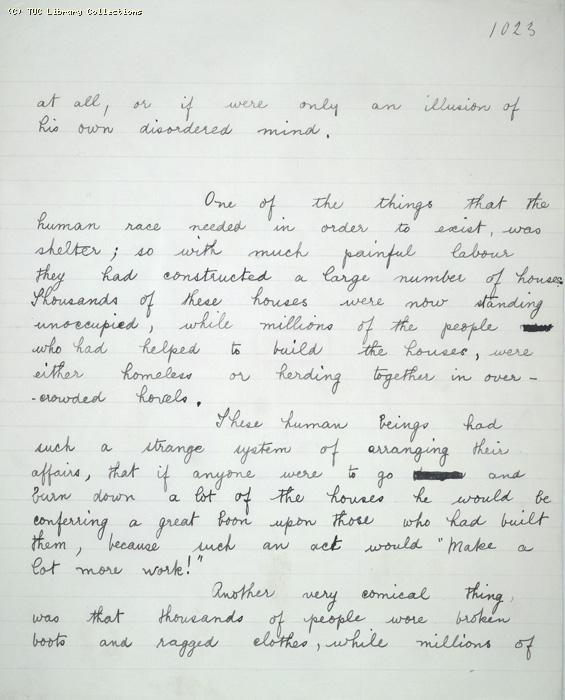 (C) TUC Library Collections
1023
at all, or if were only an illusion of
his own disordered mind.
One of the things that the
human race needed in order to exist, was
shelter; so with much painful labour
they had constructed a large number of houses.
Thousands of these houses were now standing
unoccupied, while millions of the people
who had helped to build the houses, were
either homeless or herding together in over-
-crowded hovels.
These human beings had
such a strange system of arranging their
affairs, that if anyone were to go and
burn down a lot of the houses he would be
conferring a great boon upon those who had built
them, because such an act would "Make a
lot more work!"
Another very comical thing,
was that thousands of people wore broken
boots and ragged clothes, while millions of